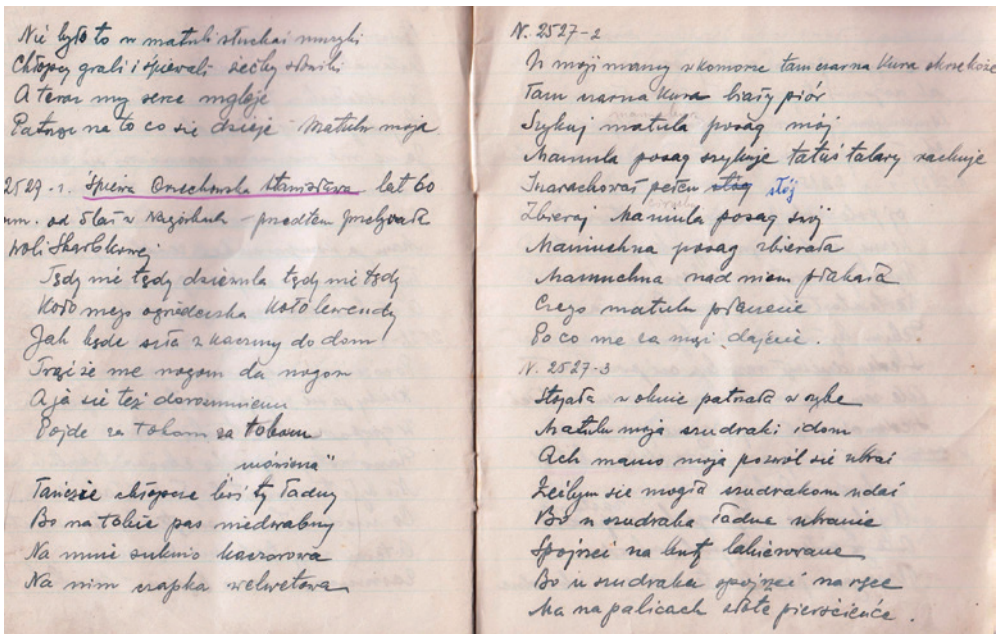 Nie było to w matuli słuchać muzyki
Chłopcy grali i śpiewali siećky słowiki
A teraz my serce mgleje
Patrze na to co sie dzieje Matulu moja
2527-1. Śpiewa Orzechowska Stanisława lat 60
um. od 5 lat w Nagórkach – przedtem przebywała
Woli Skarbkowej
Tędy nie tędy dziewula tędy nie tędy
Koło mego ogródecka koło lewendy
Jak będe szła z kaczmy do dom
Trąć że me nogom da nogom
A ja sie też dorozumiem
Pojde za tobom za tobom
"mówiona"
Tańczże chłopcze boś ty ładny
Bo na tobie pas niedwabny
Na mnie suknio kaczorowa
Na nim czapka welwetowa
N. 2527-2
U moji mamy w komorze tam czarna kura skrzekoże
Tam czarna kura biały piór
Szykuj matula posag mój
Mamula posag szykuje tatuś talary rachuje
Inarachował pełen stóg stój
Zbieraj Mamula posag swój
Mamuchna posag zbierała
Mamuchna nad niem płakała
Czego matulu płaczecie
Po co me za mąż dajecie.
N. 2527-3
Stojała w oknie patrzała w szybe
Matulu moja szudraki idom
Ach mamo moja pozwól sie ubrać
Żećbym sie mogła szudrakom udać
Bo u szudraka ładne ubranie
Spojrzeć na buty lakierowane
Bo u szudraka spojrzeć na ręce
Ma na palicach złote pierścieńce.